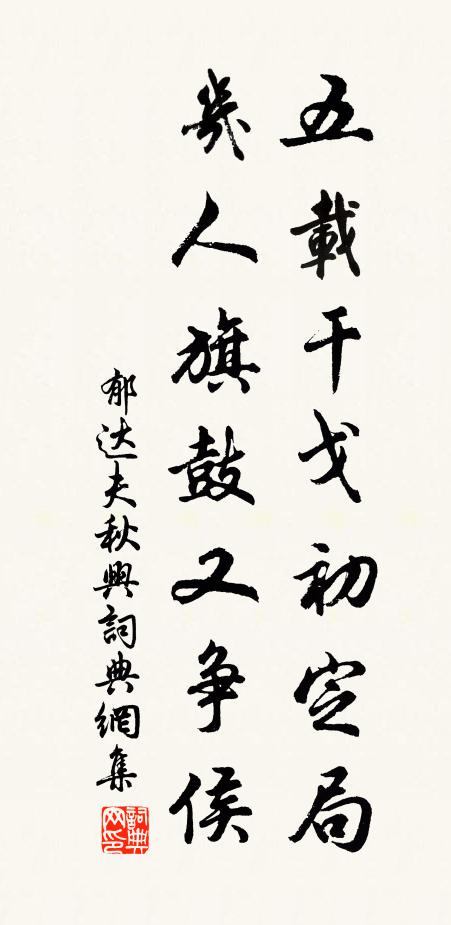 五載干戈初定局
幾人旗鼓又争侯
郁达夫秋興詞典網集
詞典網印